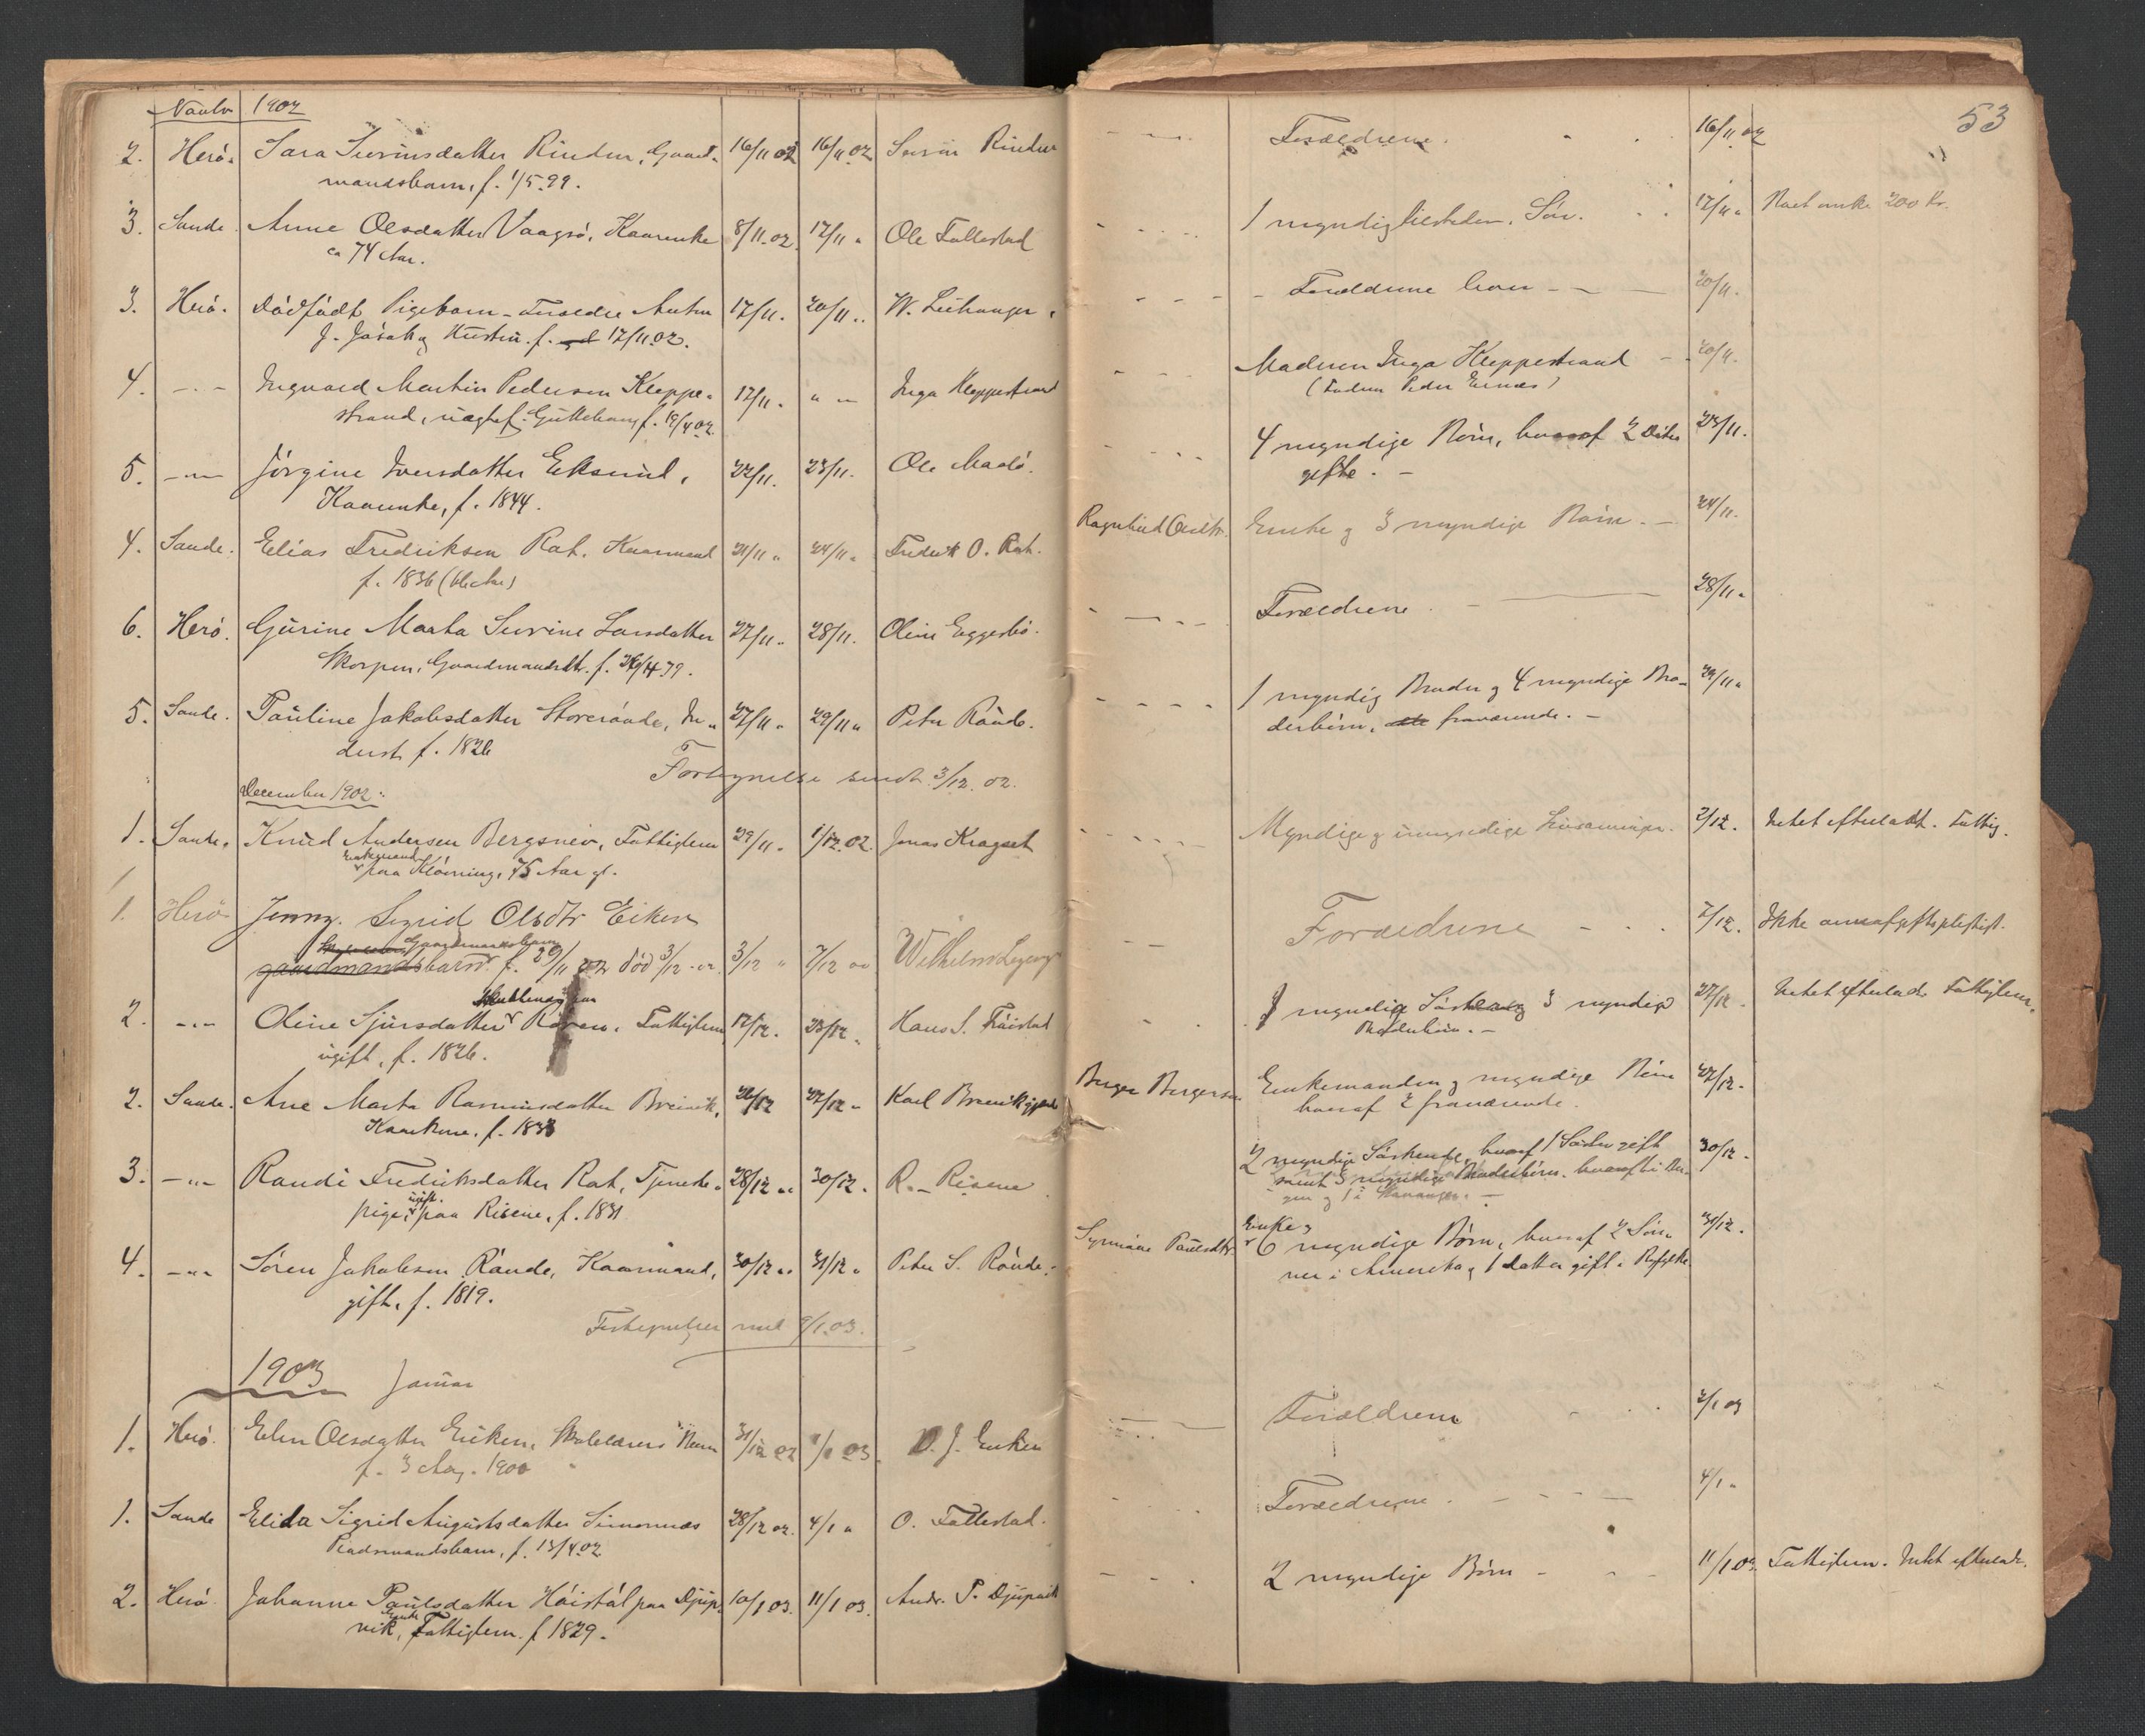 1902
53
2. Herö. Sara Severinsdatter Rinden, Gaard- 16/11 02 16/11 02 Severin Rinden Forældrene. 16/11 02
mandsbarn, f. 1/5.99.
3. Sande. Anne Olsdatter Vaagsö, Kaarenke 8/11.02. 17/11 " Ole Tallestad 1 myndig Sön. 17/11 " 200 Kr.
ca 74 Aar.
3. Herö. Dödfödt Pigebarn - Forældre Anton 17/11. 20/11.. W. Leikanger. Forældrene - 20/11.
J. Jösok og Hustru. f. 17/11.02.
4. -"- Ingvard Martin Pedersen Kleppe- 17/11. " " Inga Kleppestrand Moderen Inga Kleppestrand - 20/11.
strand, uægtef. Guttebarn, f. 19/4 02.
(Faderen Peder )
5. -"- Jörgine Iversdatter Eksund, 22/11. 23/11. Ole Madö. 4 myndige Börn, hvoraf 2 Dötre 23/11.
gifte. -
Kaarenke, f. 1844.
4. Sande. Elias Fredriksen Rat. Kaarmand 21/11 " 24/11 " Fredrik O. Rat. Ragnhild Olsdtr. Enke og 3 myndige Börn. - 24/11.
f. 1836 (66 Aar)
6. Herö. Gurine Marta Severine Larsdatter 27/11. 28/11. Oline Eggesbö. Forældrene. - 28/11.
Skorpen, Gaardmandsdtr. f. 79.
5. Sande. Pauline Jakobsdatter Storerönde, In- 27/11 " 29/11 " Peter Rönde. 1 myndig Broder og 4 myndige Bro- 29/11 "
derbörn, fraværende. -
derst f. 1826
Fortegnelse sendt 3/12. 02.
December 1902:
1. Sande. Knud Andersen Bergsnev, Fattiglem 29/11. 1/12.02. Jonas Kragset Myndige og umyndige Livsarvinger. 2/12. Intet efterladt. Fattig.
Enkemand
paa Klövning, 75 Aar gl.
1. Herö Jenny Sigrid Olsdtr Eiken Forældrene - 7/12. Ikke arveafgiftspligtigt.
Gaardmandsbarn
gaardmandsbarn f. 29/11 02 död 3/12-02. 3/12 " 7/12 02
2. -"- Oline Sjursdatter Röyren. Fattiglem 17/12. 23/12. Hans S. 1 myndig Söskende og 3 myndige 27/12. Intet efterladt. Fattiglem.
Broderbörn. -
ugift, f. 1826.
2. Sande. Ane Marta Rasmusdatter Breivik, 26/12 27/12 " Karl Breivikgjerde Berge Bergersen Enkemanden og myndige Börn 27/12.
hvoraf 2 fraværende.
Kaarkone. f. 1833
3. -"- Randi Fredriksdatter Rat, Tjeneste- 28/12 " 30/12. R. Risene 2 myndige Söskende, hvoraf 1 Söster gift 30/12.
samt 5 myndige Broderbörn. hvoraf i Ber-
gen og 1 i Stavanger. -
ugift
pige, paa Risene, f. 1831
4. -"- Sören Jakobsen Rönde, Kaarmand, 30/12 " 31/12 " Peter S. Rönde. Synnöve Paulsdtr. Enke og
6 myndige Börn, hvoraf 2 Sön- 31/12.
ner i Amerika og 1 datter gift i
gift, f. 1819.
Fortegnelser 9/1.03.
1903 Januar
1. Herö. Elen Olsdatter Eiken, Skolelærers Barn 31/12 02 1/1 03. O. J. Eiken Forældrene 2/1 03
f. 3 Aug. 1900
1. Sande Elida Sigrid Augustsdatter Simonnæs 28/12 02. 4/1 " O. Tallestad. Forældrene. 4/1 "
Pladsmandsbarn, f. 13/4 02
2. Herö. Johanne Paulsdatter Höistöl paa Djup- 10/1 03. 11/1 03. Andr. P. Djupvik 2 myndige Börn - 11/1 03. Fattiglem. Intet efterladt.
Enke
vik, Fattiglem. f 1829.